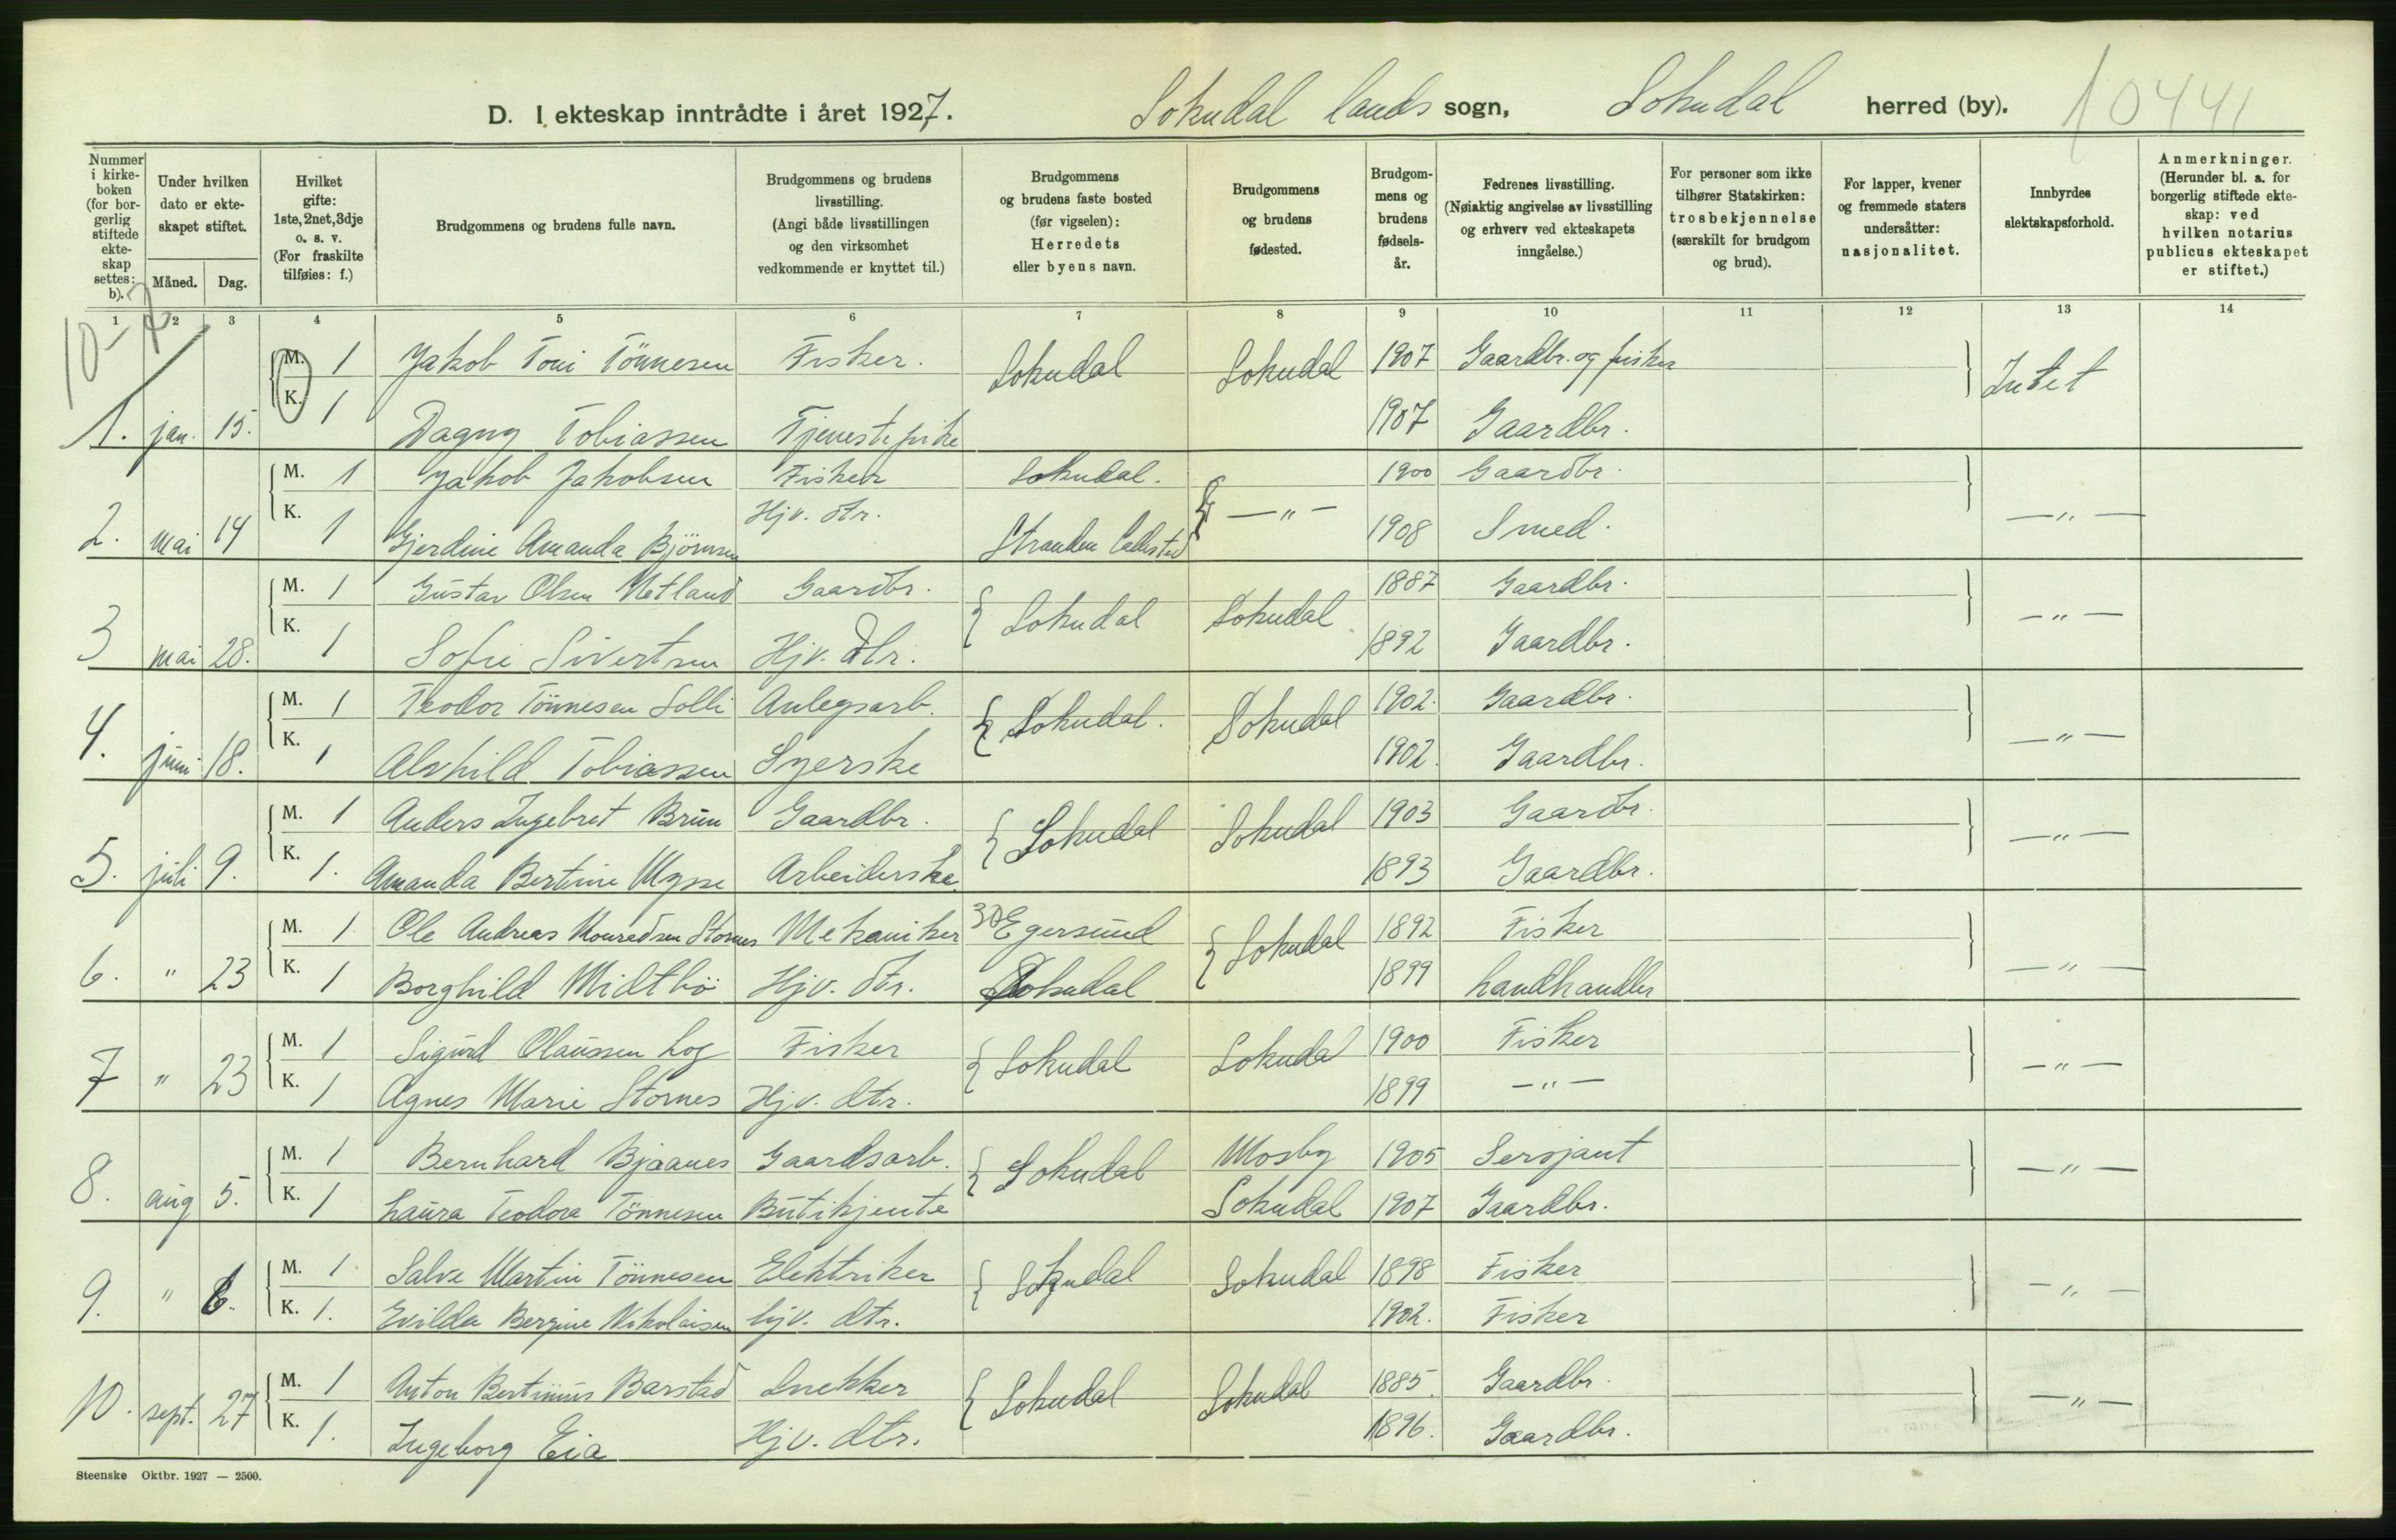 D. I ekteskap inntrådte i året 1927. Sokndal lands sogn, Sokndal herred (by). 10441
Nummer i kirkeboken (for borgerlig stiftede ekteskap settes: b).
Under hvilken dato er ekteskapet stiftet.
Måned. Dag.
Hvilket gifte: 1ste, 2net, 3dje o. s. v. (For fraskilte tilføies: f.)
Brudgommens og brudens fulle navn.
Brudgommens og brudens livsstilling. (Angi både livsstillingen og den virksomhet vedkommende er knyttet til.)
Brudgommens og brudens faste bosted (før vigselen): Herredets eller byens navn.
Brudgommens og brudens fødested.
Brudgommens og brudens fødselsår.
Fedrenes livsstilling. (Nøiaktig angivelse av livsstilling og erhverv ved ekteskapets inngåelse.)
For personer som ikke tilhører Statskirken: trosbekjennelse (særskilt for brudgom og brud).
For lapper, kvener og fremmede staters undersåtter: nasjonalitet.
Innbyrdes slektskapsforhold.
Anmerkninger. (Herunder bl. a. for borgerlig stiftede ekteskap: ved hvilken notarius publicus ekteskapet er stiftet.)
1 2 3 4 5 6 7 8 9 10 11 12 13 14
M. 1 Jakob Toni Tönnesen Fisker. Sokndal Sokndal 1907 Gaardbr. og fisker Intet
1. jan. 15. K. 1 Dagny Tobiassen Tjenestepike 1907 Gaardbr.
M. 1 Jakob Jakobsen Fisker Sokndal. 1900 Gaardbr.
2. mai 14 K. 1 Gjerdine Amanda Björnsen Hjv. dtr. Stranden Ladested — " — 1908 Smed. — " —
M. 1 Gustav Olsen Netland Gaardbr. Sokndal Sokndal 1887 Gaardbr. — " —
3 mai 28. K. 1 Sofie Sivertsen Hjv. dtr. 1892 Gaardbr.
M. 1 Teodor Tönnesen Solli Anlegsarb. Sokndal. Sokndal 1902. Gaardbr. — " —
4. juni 18. K. 1 Alvhild Tobiassen Syerske 1902. Gaardbr.
M. 1 Anders Ingebret Brun Gaardbr. Sokndal Sokndal 1903 Gaardbr. — " —
5. juli 9. K. 1. Amanda Bertine Mysse Arbeiderske 1893 Gaardbr.
M. 1 Ole Andreas Konradsen Stornes Mekaniker Egersund Sokndal 1892 Fisker
6. " 23 K. 1 Borghild Midtbö Hjv. dtr. Sokndal 1899 Landhandler — " —
M. 1 Sigurd Olaussen Log Fisker Sokndal Sokndal 1900 Fisker — " —
7 " 23 K. 1 Agnes Marie Stornes Hjv. dtr. 1899 — " —
M. 1 Bernhard Bjaanes Gaardsarb. Sokndal Mosby 1905 Sersjant — " —
8. aug 5. K. 1 Laura Teodora Tönnesen Butikjente Sokndal 1907 Gaardbr.
M. 1 Salve Martin Tönnesen Elektriker Sokndal Sokndal 1898 Fisker — " —
9. " 6. K. 1. Evilda Bergine Nikolaisen hjv. dtr. 1902. Fisker
M. 1 Anton Bertinius Barstad Snekker Sokndal Sokndal 1885. Gaardbr. — " —
10. sept. 27 K. 1. Ingeborg Eia Hjv. dtr. 1896. Gaardbr.
Steenske Oktbr. 1927 — 2500.